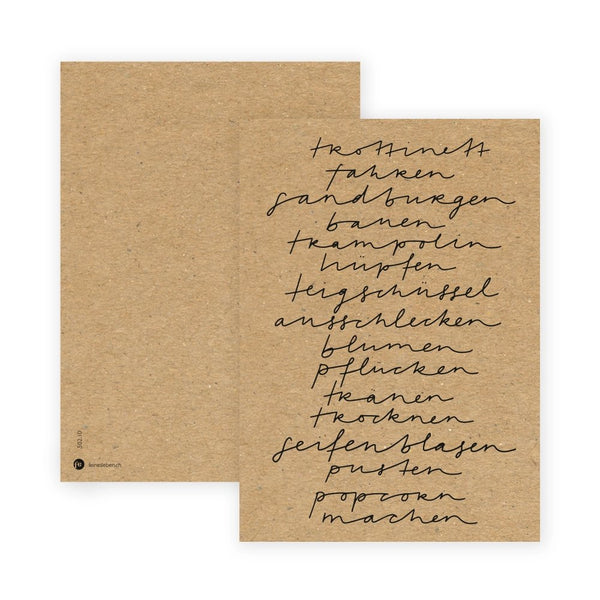 trottinett
fahren
sandburgen
bauen
trampolin
hüpfen
teigschüssel
ausschlecken
blumen
pflücken
tränen
trocknen
seifenblasen
pusten
popcorn
machen
502.10
feinesleben.ch